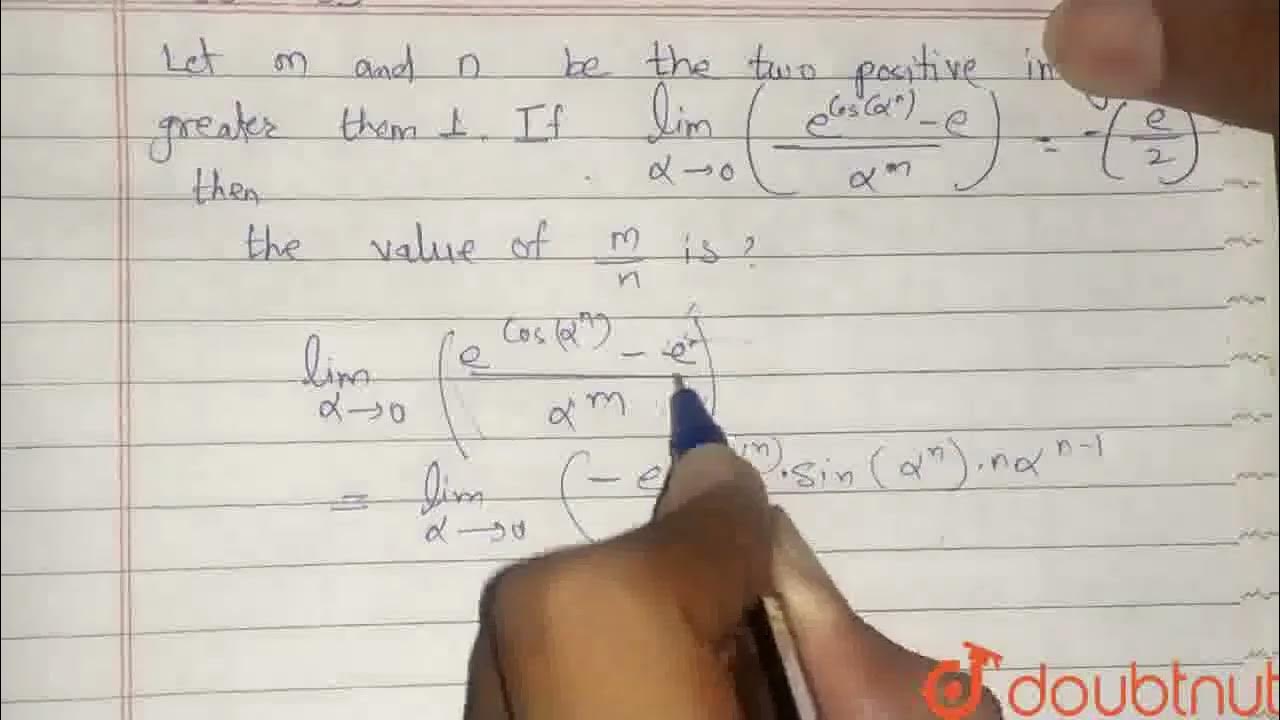 Let m and n be the two positive
greater them 1. If lim α→0 (e^cos(α^n) - e / α^m) = -(e/2)
then
the value of m/n is?
lim α→0 (e^cos(α^n) - e / α^m)
= lim α→0 (- e ^n) . sin (α^n) . nα^n-1
doubtnut